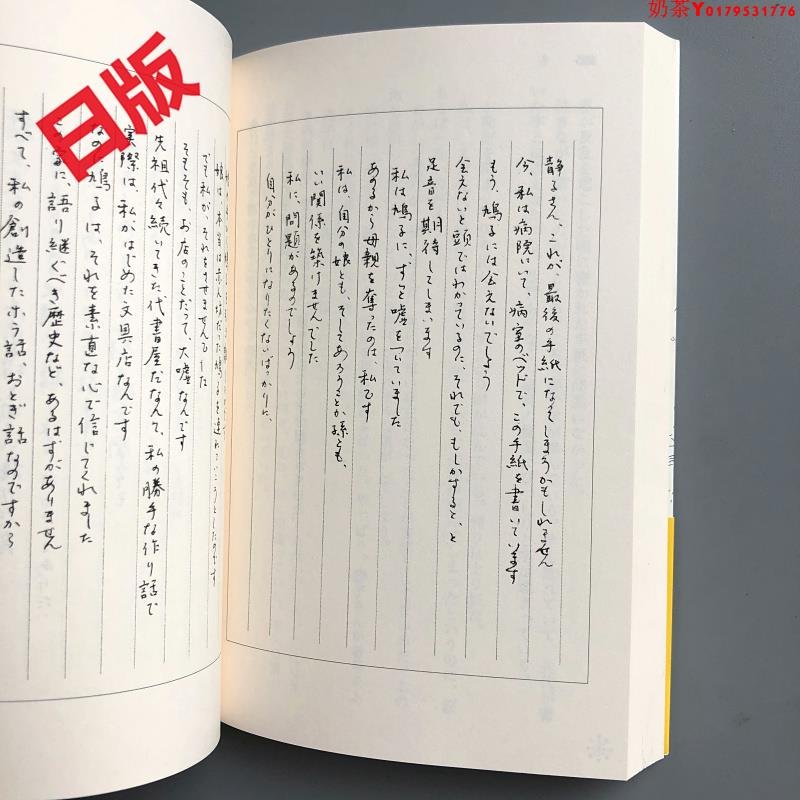 奶茶Y0179531776
日版
静子さん、これが、最後の手紙になってしまうかもしれません
今、私は病院にいて、病室のベッドで、この手紙を書いています
もう、鳩子には会えないでしょう
会えないと頭ではわかっているのに、それでも、もしかすると、と
足音を期待してしまいます
私は鳩子に、ずっと嘘をついていました
あの子から母親を奪ったのは、私です
私は、自分の娘とも、そしてあろうことか孫とも、
いい関係を築けませんでした
私に、問題があるのでしょう
自分がひとりになりたくないばっかりに、
娘は、本当は赤ん坊だった鳩子を連れていこうとしたのです
でも私が、それをさせませんでした
そもそも、お店のことだって、大嘘なんです
先祖代々続いてきた代書屋だなんて、私の勝手な作り話で
実際は、私がはじめた文具店なんです
なのに鳩子は、それを素直な心で信じてくれました
に、語り継ぐべき歴史など、あるはずがありません
すべて、私の創造したホラ話、おとぎ話なのですから